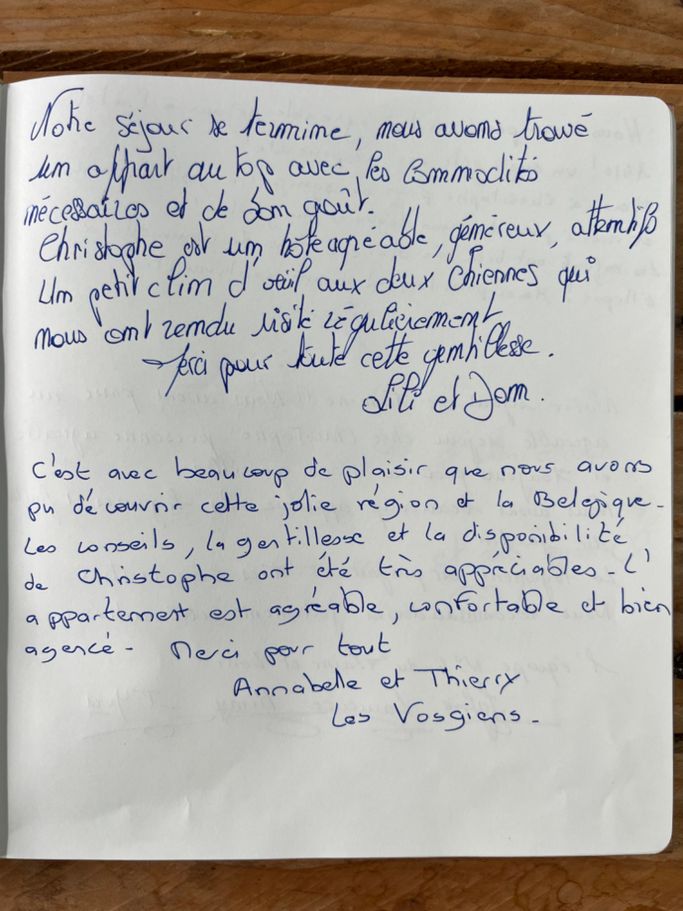 Notre séjour se termine, nous avons trouvé
un appart au top avec les commodités
nécessaires et de bon goût.
Christophe est un hôte agréable, généreux, attentif
Un petit clin d'œil aux deux chiennes qui
nous ont rendu visite régulièrement
Merci pour toute cette gentillesse.
Lili et Dom.
C'est avec beaucoup de plaisir que nous avons
pu découvrir cette jolie région et la Belgique.
Les conseils, la gentillesse et la disponibilité
de Christophe ont été très appréciables. L'
appartement est agréable, confortable et bien
agencé. Merci pour tout
Annabelle et Thierry
Les Vosgiens.